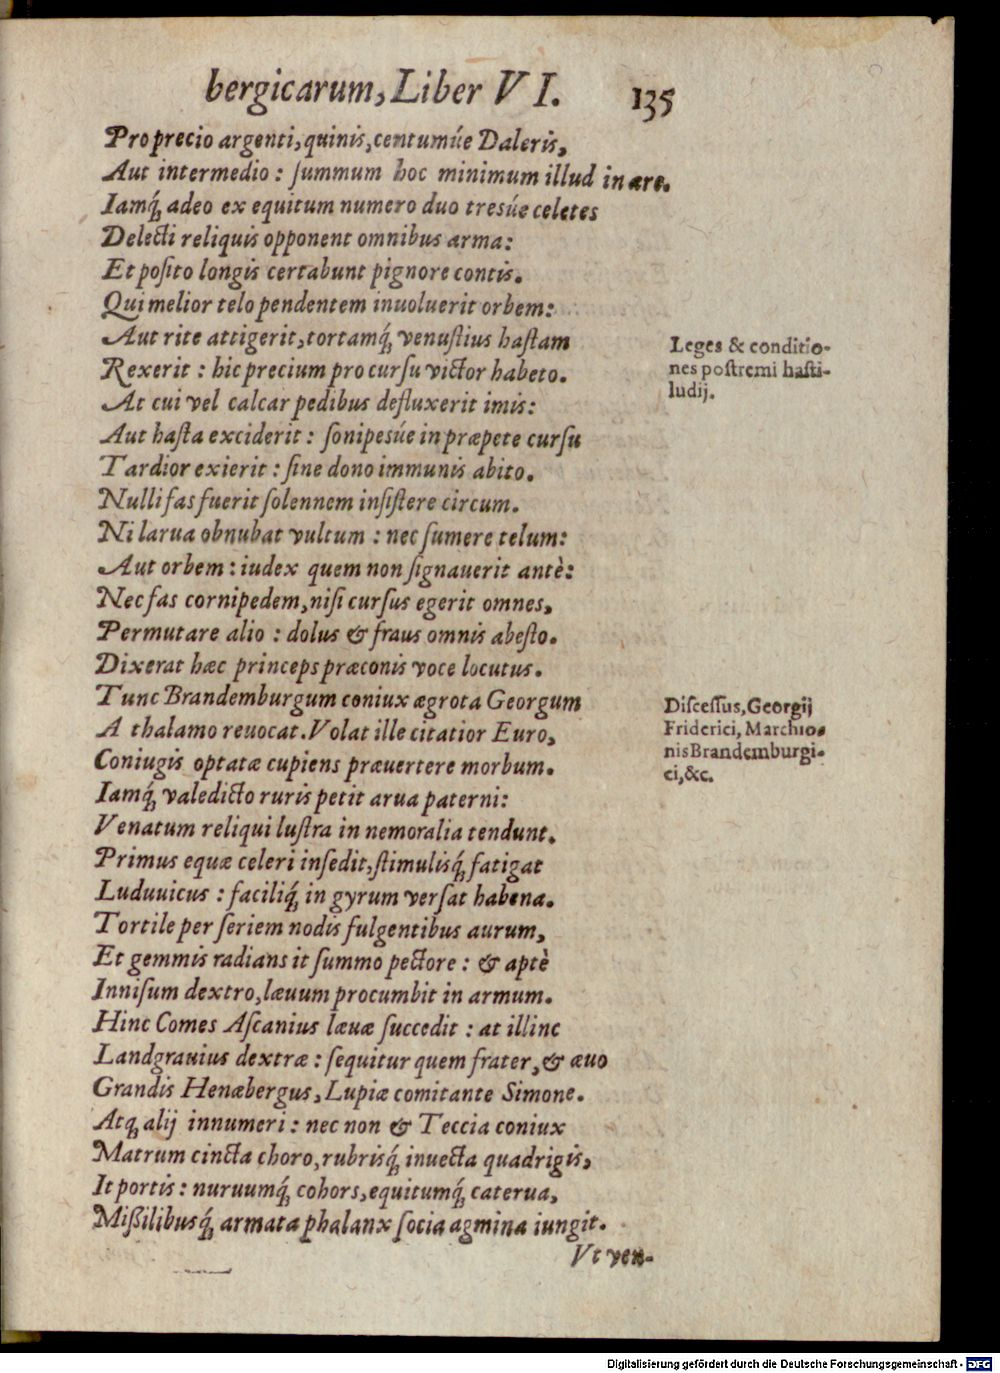 bergicarum, Liber VI. 135
Pro precio argenti, quinis, centumúe Daleris,
Aut intermedio: summum hoc minimum illud in ære.
Iamq́; adeo ex equitum numero duo tresúe celetes
Delecti reliquis opponent omnibus arma:
Et posito longis certabunt pignore contis.
Qui melior telo pendentem inuoluerit orbem:
Aut rite attigerit, tortamq́; venustius hastam
Rexerit: hic precium pro cursu victor habeto.
At cui vel calcar pedibus defluxerit imis:
Aut hasta exciderit: sonipesúe in præpete cursu
Tardior exierit: sine dono immunis abito.
Nulli fas fuerit solennem insistere circum.
Ni larua obnubat vultum: nec sumere telum:
Aut orbem: iudex quem non signauerit antè:
Nec fas cornipedem, nisi cursus egerit omnes,
Permutare alio: dolus & fraus omnis abesto.
Dixerat hæc princeps præconis voce locutus.
Tunc Brandemburgum coniux ægrota Georgum
A thalamo reuocat. Volat ille citatior Euro,
Coniugis optatæ cupiens præuertere morbum.
Iamq́; valedicto ruris petit arua paterni:
Venatum reliqui lustra in nemoralia tendunt.
Primus equæ celeri insedit, stimulisq́; fatigat
Luduuicus: faciliq́; in gyrum versat habena.
Tortile per seriem nodis fulgentibus aurum,
Et gemmis radians it summo pectore: & aptè
Innisum dextro, læuum procumbit in armum.
Hinc Comes Ascanius læuæ succedit: at illinc
Landgrauius dextræ: sequitur quem frater, & æuo
Grandis Henæbergus, Lupiæ comitante Simone.
Atq; alij innumeri: nec non & Teccia coniux
Matrum cincta choro, rubrisq́; inuecta quadrigis,
It portis: nuruumq́; cohors, equitumq́; caterua,
Mißilibusq́; armata phalanx socia agmina iungit.
Vt ven-
Leges & conditio-
nes postremi hasti-
ludij.
Discessus, Georgij
Friderici, Marchio-
nis Brandemburgi-
ci, &c.
Digitalisierung gefördert durch die Deutsche Forschungsgemeinschaft - DFG